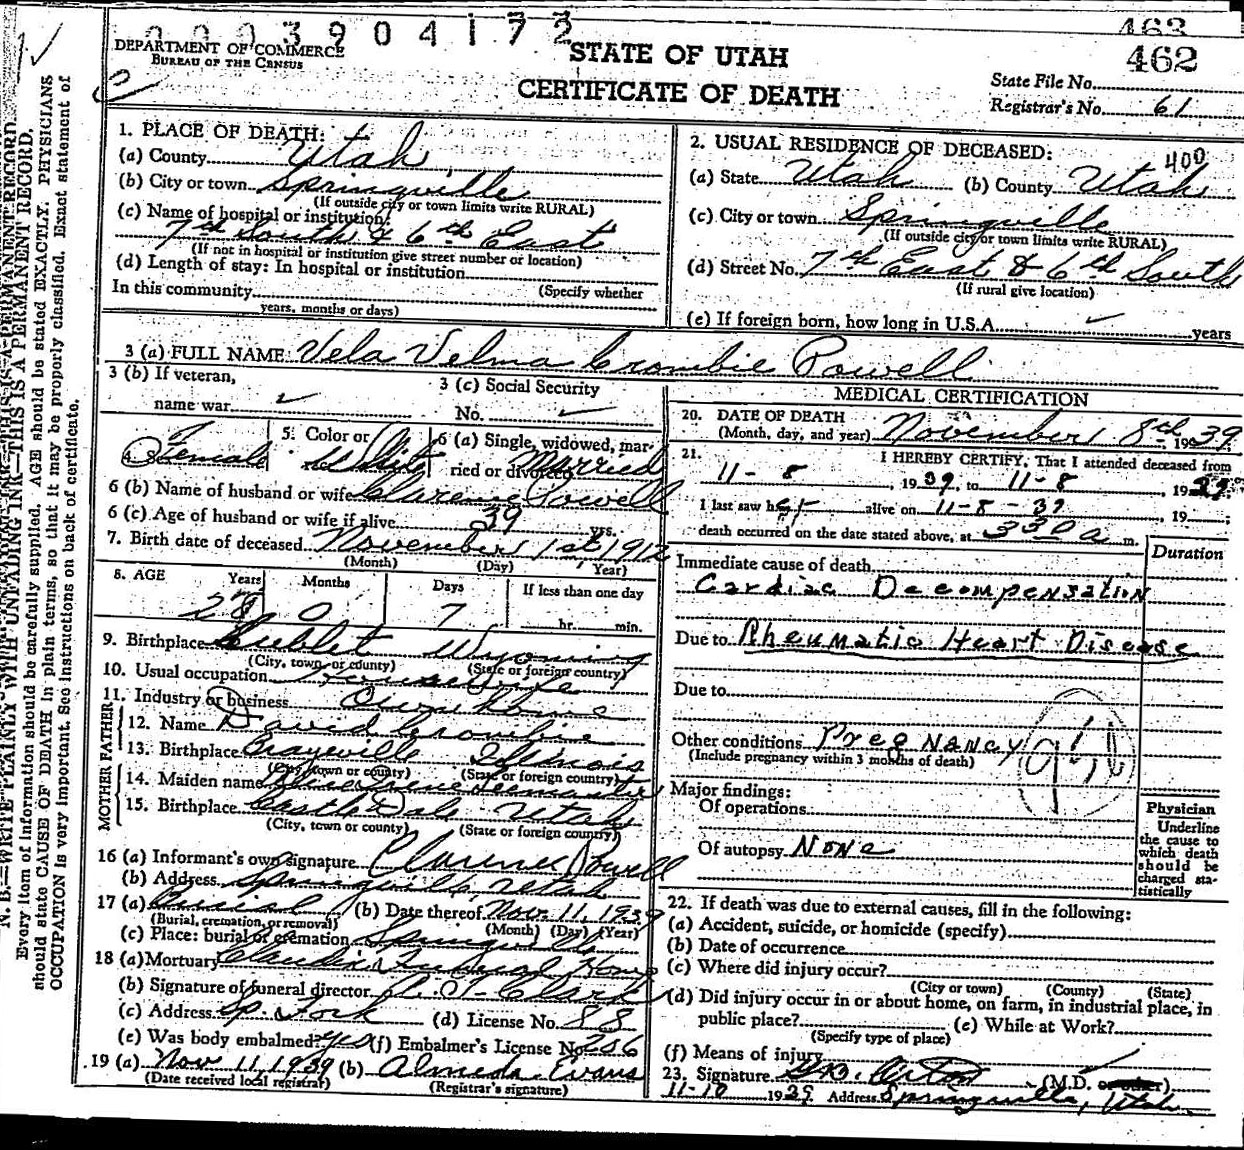 0003904172
463
462
DEPARTMENT OF COMMERCE
BUREAU OF THE CENSUS
STATE OF UTAH
CERTIFICATE OF DEATH
State File No.
Registrar's No. 61
N. B.—WRITE PLAINLY WITH UNFADING INK—THIS IS A PERMANENT RECORD.
Every item of information should be carefully supplied. AGE should be stated EXACTLY. PHYSICIANS
should state CAUSE OF DEATH in plain terms, so that it may be properly classified. Exact statement of
OCCUPATION is very important. See instructions on back of certificate.
1. PLACE OF DEATH:
(a) County Utah
(b) City or town Springville
(If outside city or town limits write RURAL)
(c) Name of hospital or institution:
7th South & 6th East
(If not in hospital or institution give street number or location)
(d) Length of stay: In hospital or institution
In this community (Specify whether
years, months or days)
2. USUAL RESIDENCE OF DECEASED:
400
(a) State Utah (b) County Utah
(c) City or town Springville
(If outside city or town limits write RURAL)
(d) Street No. 7th East & 6th South
(If rural give location)
(e) If foreign born, how long in U.S.A. years
3 (a) FULL NAME Vela Velma Crombie Powell
3 (b) If veteran,
name war
3 (c) Social Security
No.
Female
5. Color or White
6 (a) Single, widowed, mar-
ried or divorced Married
6 (b) Name of husband or wife Clarence Powell
6 (c) Age of husband or wife if alive 39 yrs.
7. Birth date of deceased November 1st 1912
(Month) (Day) (Year)
8. AGE Years Months Days If less than one day
0 7 hr. min.
9. Birthplace Wyoming
(City, town or county) (State or foreign country)
10. Usual occupation Housewife
11. Industry or business Own home
FATHER
12. Name David Crombie
13. Birthplace Grayville Illinois
(City, town or county) (State or foreign country)
MOTHER
14. Maiden name
15. Birthplace Castle Dale Utah
(City, town or county) (State or foreign country)
16 (a) Informant's own signature Clarence Powell
(b) Address Springville, Utah
17 (a) Burial (b) Date thereof Nov. 11, 1939
(Burial, cremation, or removal) (Month) (Day) (Year)
(c) Place: burial or cremation Springville
18 (a) Mortuary Funeral Home
(b) Signature of funeral director Clark
(c) Address Sp. Fork (d) License No. 88
(e) Was body embalmed? Yes (f) Embalmer's License No. 256
19 (a) Nov 11, 1939 (b) Almeda Evans
(Date received local registrar) (Registrar's signature)
MEDICAL CERTIFICATION
20. DATE OF DEATH
(Month, day, and year) November 8th 1939
21. I HEREBY CERTIFY, That I attended deceased from
11-8, 1939, to 11-8, 1939;
I last saw her alive on 11-8-39, 19;
death occurred on the date stated above, at 330 a m.
Duration
Immediate cause of death
Cardiac Decompensation
Due to Rheumatic Heart Disease
Due to
Other conditions Pregnancy
(Include pregnancy within 3 months of death)
Major findings:
Of operations
Of autopsy None
Physician
Underline
the cause to
which death
should be
charged sta-
tistically
22. If death was due to external causes, fill in the following:
(a) Accident, suicide, or homicide (specify)
(b) Date of occurrence
(c) Where did injury occur?
(City or town) (County) (State)
(d) Did injury occur in or about home, on farm, in industrial place, in
public place? (e) While at Work?
(Specify type of place)
(f) Means of injury
23. Signature Orton (M.D. or other)
11-10 1939 Address Springville, Utah